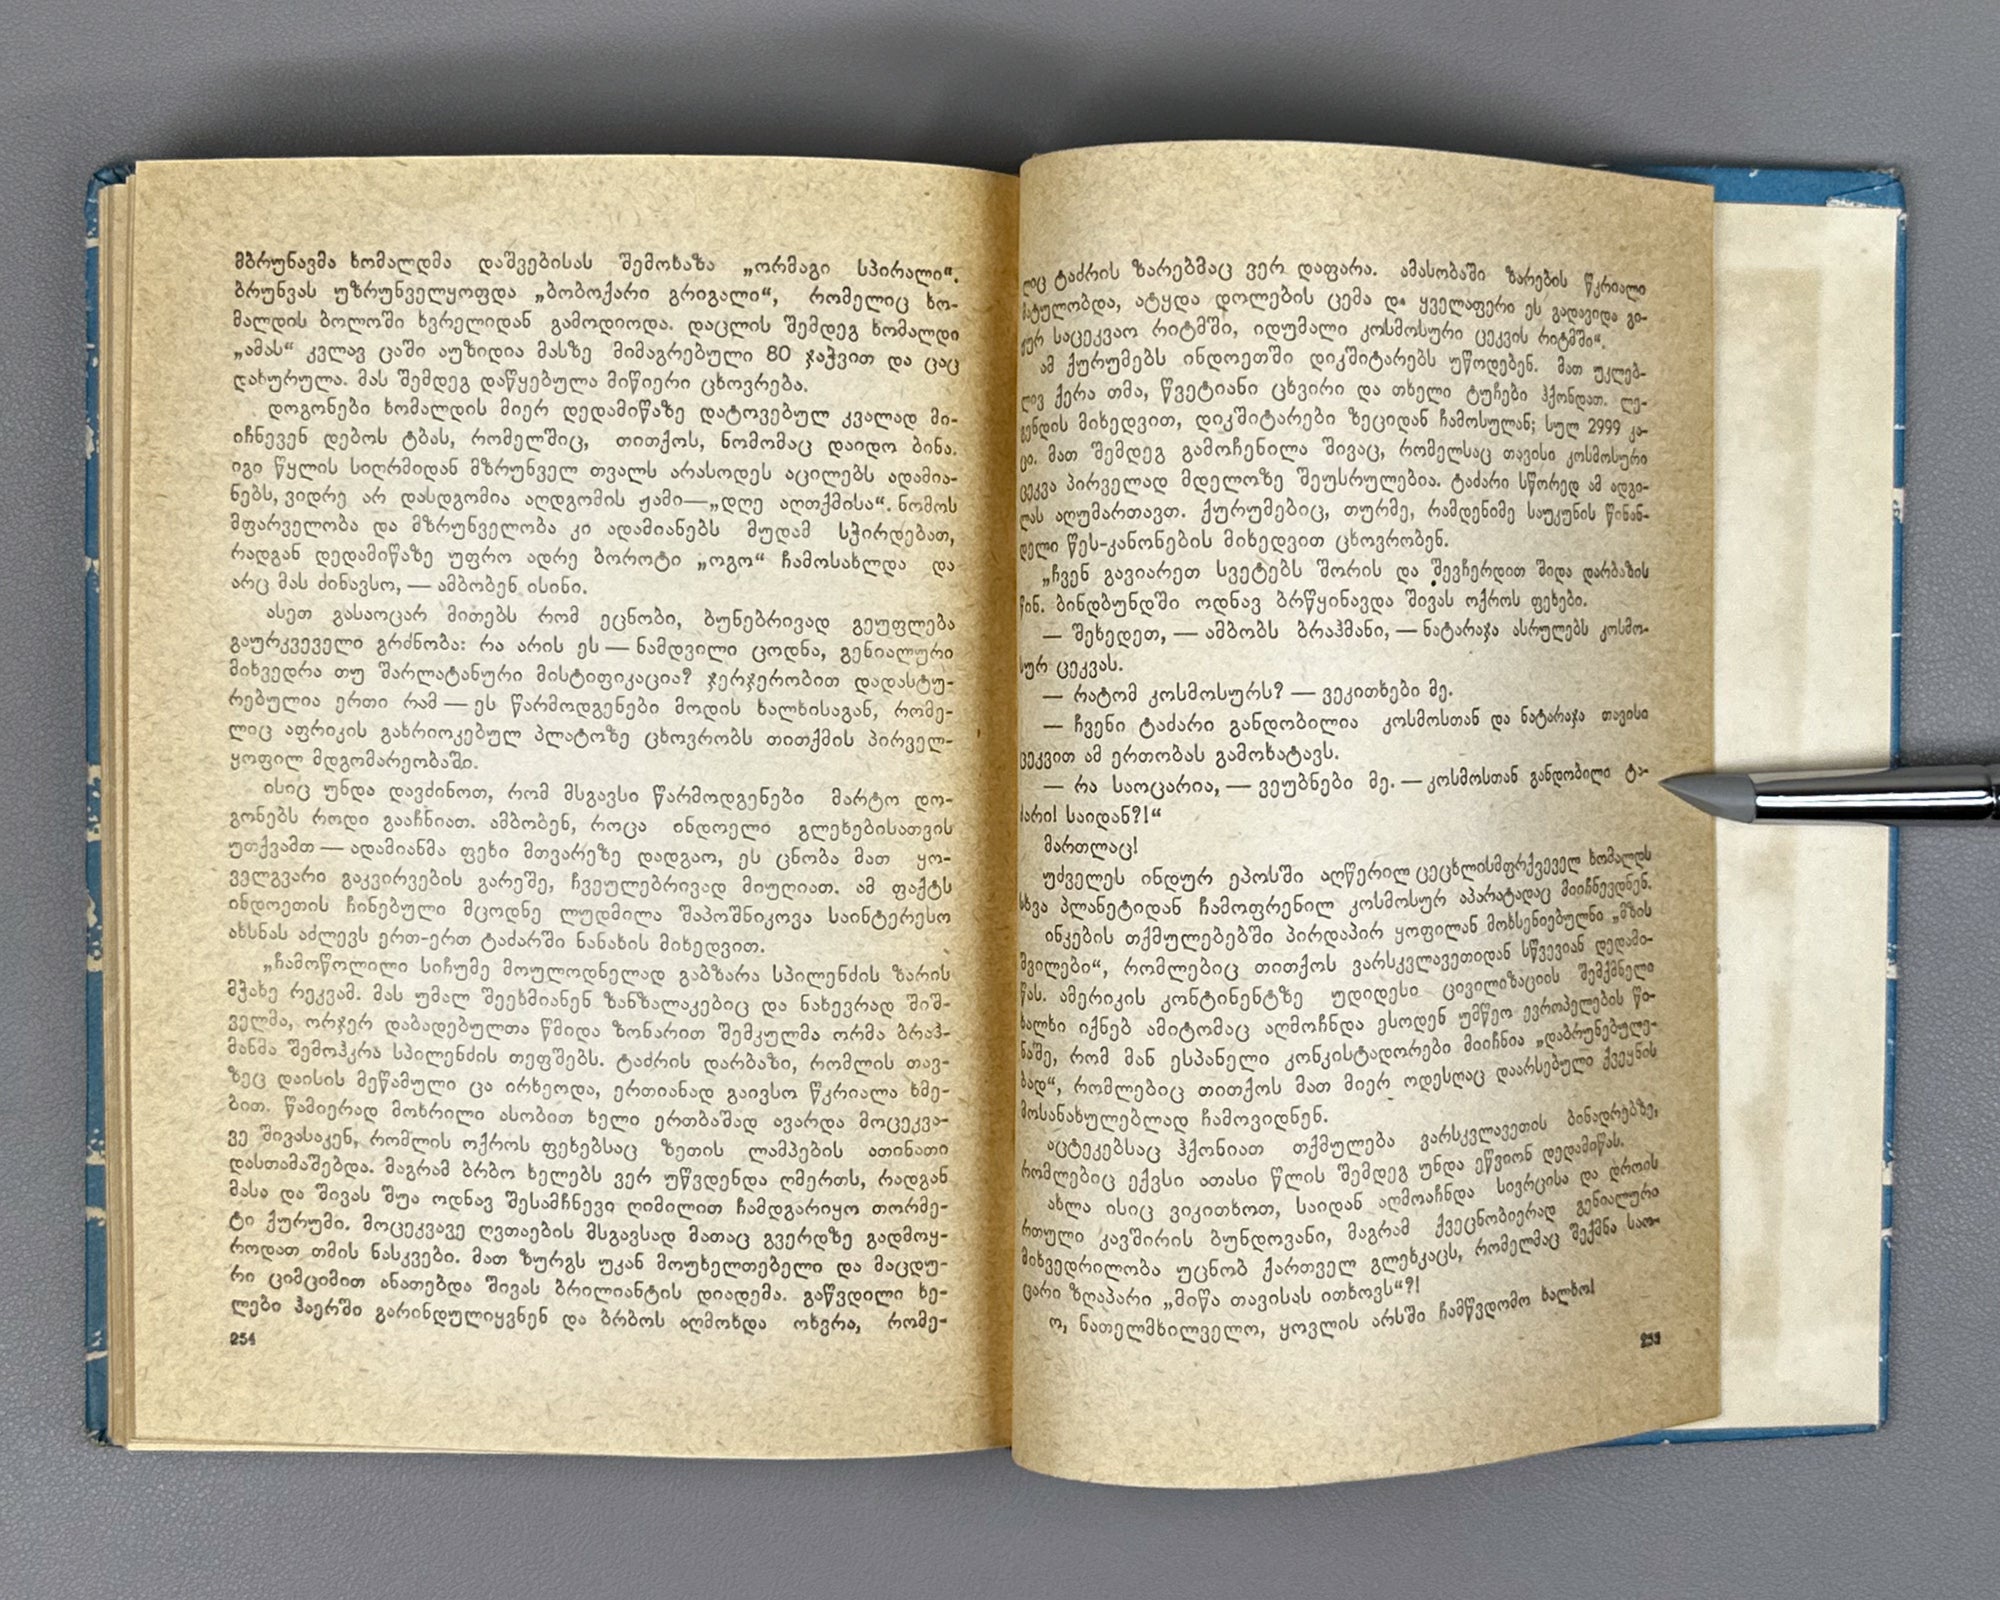 მბრუნავმა ხომალდმა დაშვებისას შემოხაზა „ორმაგი სპირალი“.
ბრუნვას უზრუნველყოფდა „ბობოქარი გრიგალი“, რომელიც ხო-
მალდის ბოლოში ხვრელიდან გამოდიოდა. დაცლის შემდეგ ხომალდი
„ამას“ კვლავ ცაში აუზიდია მასზე მიმაგრებული 80 ჯაჭვით და ცაც
დახურულა. მას შემდეგ დაწყებულა მიწიერი ცხოვრება.
დოგონები ხომალდის მიერ დედამიწაზე დატოვებულ კვალად მი-
იჩნევენ დებოს ტბას, რომელშიც, თითქოს, ნომომაც დაიდო ბინა.
იგი წყლის სიღრმიდან მზრუნველ თვალს არასოდეს აცილებს ადამია-
ნებს, ვიდრე არ დასდგომია აღდგომის ჟამი—„დღე აღთქმისა“. ნომოს
მფარველობა და მზრუნველობა კი ადამიანებს მუდამ სჭირდებათ,
რადგან დედამიწაზე უფრო ადრე ბოროტი „ოგო“ ჩამოსახლდა და
არც მას ძინავსო, — ამბობენ ისინი.
ასეთ გასაოცარ მითებს რომ ეცნობი, ბუნებრივად გეუფლება
გაურკვეველი გრძნობა: რა არის ეს — ნამდვილი ცოდნა, გენიალური
მიხვედრა თუ შარლატანური მისტიფიკაცია? ჯერჯერობით დადასტუ-
რებულია ერთი რამ — ეს წარმოდგენები მოდის ხალხისაგან, რომე-
ლიც აფრიკის გახრიოკებულ პლატოზე ცხოვრობს თითქმის პირველ-
ყოფილ მდგომარეობაში.
ისიც უნდა დავძინოთ, რომ მსგავსი წარმოდგენები მარტო დო-
გონებს როდი გააჩნიათ. ამბობენ, როცა ინდოელი გლეხებისათვის
უთქვამთ — ადამიანმა ფეხი მთვარეზე დადგაო, ეს ცნობა მათ ყო-
ველგვარი გაკვირვების გარეშე, ჩვეულებრივად მიუღიათ. ამ ფაქტს
ინდოეთის ჩინებული მცოდნე ლუდმილა შაპოშნიკოვა საინტერესო
ახსნას აძლევს ერთ-ერთ ტაძარში ნანახის მიხედვით.
„ჩამოწოლილი სიჩუმე მოულოდნელად გაბზარა სპილენძის ზარის
მჭახე რეკვამ. მას უმალ შეეხმიანენ ზანზალაკებიც და ნახევრად შიშ-
ველმა, ორჯერ დაბადებულთა წმიდა ზონარით შემკულმა ორმა ბრაჰ-
მანმა შემოჰკრა სპილენძის თეფშებს. ტაძრის დარბაზი, რომლის თავ-
ზეც დაისის მეწამული ცა ირხეოდა, ერთიანად გაივსო წკრიალა ხმე-
ბით. წამიერად მოხრილი ასობით ხელი ერთბაშად ავარდა მოცეკვა-
ვე შივასაკენ, რომლის ოქროს ფეხებსაც ზეთის ლამპების ათინათი
დასთამაშებდა. მაგრამ ბრბო ხელებს ვერ უწვდენდა ღმერთს, რადგან
მასა და შივას შუა ოდნავ შესამჩნევი ღიმილით ჩამდგარიყო თორმე-
ტი ქურუმი. მოცეკვავე ღვთაების მსგავსად მათაც გვერდზე გადმოყ-
როდათ თმის ნასკვები. მათ ზურგს უკან მოუხელთებელი და მაცდუ-
რი ციმციმით ანათებდა შივას ბრილიანტის დიადემა. გაწვდილი ხე-
ლები ჰაერში გარინდულიყვნენ და ბრბოს აღმოხდა ოხვრა, რომე-
254
ლიც ტაძრის ზარებმაც ვერ დაფარა. ამასობაში ზარების წკრიალი
მატულობდა, ატყდა დოლების ცემა და ყველაფერი ეს გადავიდა გი-
ჟურ საცეკვაო რიტმში, იდუმალი კოსმოსური ცეკვის რიტმში“.
ამ ქურუმებს ინდოეთში დიკშიტარებს უწოდებენ. მათ უკლებ-
ლივ ქერა თმა, წვეტიანი ცხვირი და თხელი ტუჩები ჰქონდათ. ლე-
გენდის მიხედვით, დიკშიტარები ზეციდან ჩამოსულან; სულ 2999 კა-
ცი. მათ შემდეგ გამოჩენილა შივაც, რომელსაც თავისი კოსმოსური
ცეკვა პირველად მდელოზე შეუსრულებია. ტაძარი სწორედ ამ ადგი-
ლას აღუმართავთ. ქურუმებიც, თურმე, რამდენიმე საუკუნის წინან-
დელი წეს-კანონების მიხედვით ცხოვრობენ.
„ჩვენ გავიარეთ სვეტებს შორის და შევჩერდით შიდა დარბაზის
წინ. ბინდბუნდში ოდნავ ბრწყინავდა შივას ოქროს ფეხები.
— შეხედეთ, — ამბობს ბრაჰმანი, — ნატარაჯა ასრულებს კოსმო-
სურ ცეკვას.
— რატომ კოსმოსურს? — ვეკითხები მე.
— ჩვენი ტაძარი განდობილია კოსმოსთან და ნატარაჯა თავისი
ცეკვით ამ ერთობას გამოხატავს.
— რა საოცარია, — ვეუბნები მე. — კოსმოსთან განდობილი ტა-
ძარი! საიდან?!“
მართლაც!
უძველეს ინდურ ეპოსში აღწერილ ცეცხლისმფრქვეველ ხომალდს
სხვა პლანეტიდან ჩამოფრენილ კოსმოსურ აპარატადაც მიიჩნევდნენ.
ინკების თქმულებებში პირდაპირ ყოფილან მოხსენიებულნი „მზის
შვილები“, რომლებიც თითქოს ვარსკვლავეთიდან სწვევიან დედამი-
წას. ამერიკის კონტინენტზე უდიდესი ცივილიზაციის შემქმნელი
ხალხი იქნებ ამიტომაც აღმოჩნდა ესოდენ უმწეო ევროპელების წი-
ნაშე, რომ მან ესპანელი კონკისტადორები მიიჩნია „დაბრუნებულე-
ბად“, რომლებიც თითქოს მათ მიერ ოდესღაც დაარსებული ქვეყნის
მოსანახულებლად ჩამოვიდნენ.
აცტეკებსაც ჰქონიათ თქმულება ვარსკვლავეთის ბინადრებზე,
რომლებიც ექვსი ათასი წლის შემდეგ უნდა ეწვიონ დედამიწას.
ახლა ისიც ვიკითხოთ, საიდან აღმოაჩნდა სივრცისა და დროის
რთული კავშირის ბუნდოვანი, მაგრამ ქვეცნობიერად გენიალური
მიხვედრილობა უცნობ ქართველ გლეხკაცს, რომელმაც შექმნა საო-
ცარი ზღაპარი „მიწა თავისას ითხოვს“?!
ო, ნათელმხილველო, ყოვლის არსში ჩამწვდომო ხალხო!